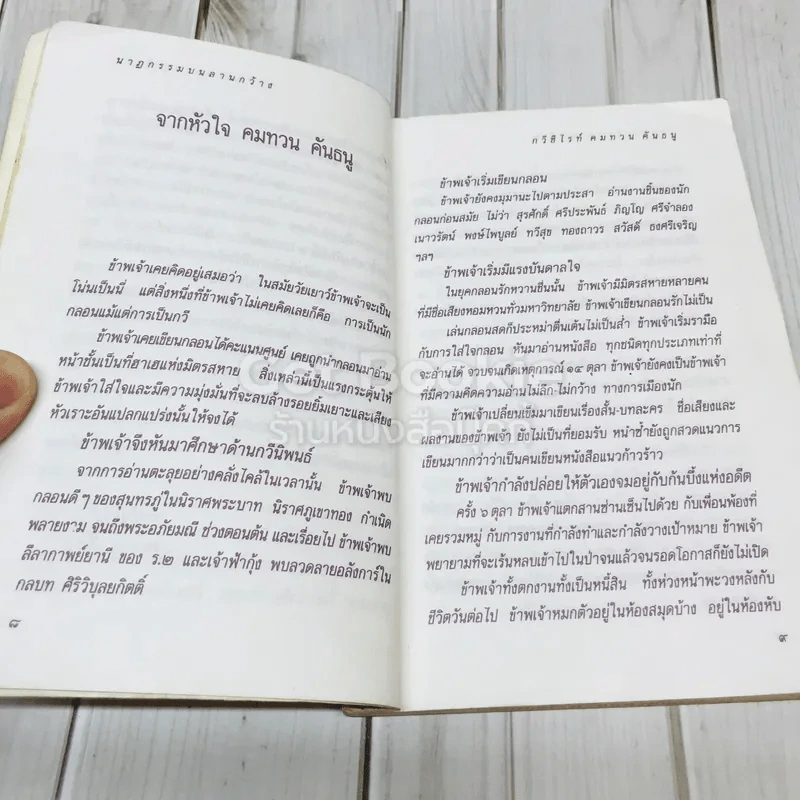 นาฏกรรมบนลานกว้าง
จากหัวใจ คมทวน คันธนู
ข้าพเจ้าเคยคิดอยู่เสมอว่า ในสมัยวัยเยาว์ข้าพเจ้าจะเป็น
โน่นเป็นนี่ แต่สิ่งหนึ่งที่ข้าพเจ้าไม่เคยคิดเลยก็คือ การเป็นนัก
กลอนแม้แต่การเป็นกวี
ข้าพเจ้าเคยเขียนกลอนได้คะแนนศูนย์ เคยถูกนำกลอนมาอ่าน
หน้าชั้นเป็นที่ฮาเฮแห่งมิตรสหาย สิ่งเหล่านี้เป็นแรงกระตุ้นให้
ข้าพเจ้าใส่ใจและมีความมุ่งมั่นที่จะลบล้างรอยยิ้มเยาะและเสียง
หัวเราะอันแปลกแปร่งนั้นให้จงได้
ข้าพเจ้าจึงหันมาศึกษาด้านกวีนิพนธ์
จากการอ่านตะลุยอย่างคลั่งไคล้ในเวลานั้น ข้าพเจ้าพบ
กลอนดีๆ ของสุนทรภู่ในนิราศพระบาท นิราศภูเขาทอง กำเนิด
พลายงาม จนถึงพระอภัยมณี ช่วงตอนต้น และเรื่อยไป ข้าพเจ้าพบ
ลีลากาพย์ยานี ของ ร.๒ และเจ้าฟ้ากุ้ง พบลวดลายอลังการ์ใน
กลบท ศิริวิบุลยกิตติ์
๘
กวีซีไรท์ คมทวน คันธนู
ข้าพเจ้าเริ่มเขียนกลอน
ข้าพเจ้ายังคงมุมานะไปตามประสา อ่านงานชิ้นของนัก
กลอนก่อนสมัย ไม่ว่า สุรศักดิ์ ศรีประพันธ์ ภิญโญ ศรีจำลอง
เนาวรัตน์ พงษ์ไพบูลย์ ทวีสุข ทองถาวร สวัสดิ์ ธงศรีเจริญ
ฯลฯ
ข้าพเจ้าเริ่มมีแรงบันดาลใจ
ในยุคกลอนรักหวานชื่นนั้น ข้าพเจ้ามีมิตรสหายหลายคน
ที่มีชื่อเสียงหอมหวนทั่วมหาวิทยาลัย ข้าพเจ้าเขียนกลอนรักไม่เป็น
เล่นกลอนสดก็ประหม่าตื่นเต้นไม่เป็นส่ำ ข้าพเจ้าเริ่มรามือ
กับการใส่ใจกลอน หันมาอ่านหนังสือ ทุกชนิดทุกประเภทเท่าที่
จะอ่านได้ จวบจนเกิดเหตุการณ์ ๑๔ ตุลา ข้าพเจ้ายังคงเป็นข้าพเจ้า
ที่มีความคิดความอ่านไม่ลึก-ไม่กว้าง ทางการเมืองนัก
ข้าพเจ้าเปลี่ยนเข็มมาเขียนเรื่องสั้น-บทละคร ชื่อเสียงและ
ผลงานของข้าพเจ้า ยังไม่เป็นที่ยอมรับ หนำซ้ำยังถูกสวดแนวการ
เขียนมากกว่าว่าเป็นคนเขียนหนังสือแนวก้าวร้าว
ข้าพเจ้ากำลังปล่อยให้ตัวเองจมอยู่กับก้นบึ้งแห่งอดีต
ครั้ง ๖ ตุลา ข้าพเจ้าแตกสานซ่านเซ็นไปด้วย กับเพื่อนพ้องที่
เคยรวมหมู่ กับการงานที่กำลังทำและกำลังวางเป้าหมาย ข้าพเจ้า
พยายามที่จะเร้นหลบเข้าไปในป่าจนแล้วจนรอดโอกาสก็ยังไม่เปิด
ข้าพเจ้าทั้งตกงานทั้งเป็นหนี้สิน ทั้งห่วงหน้าพะวงหลังกับ
ชีวิตวันต่อไป ข้าพเจ้าหมกตัวอยู่ในห้องสมุดบ้าง อยู่ในห้องหับ
๙
ร้านหนังสือ